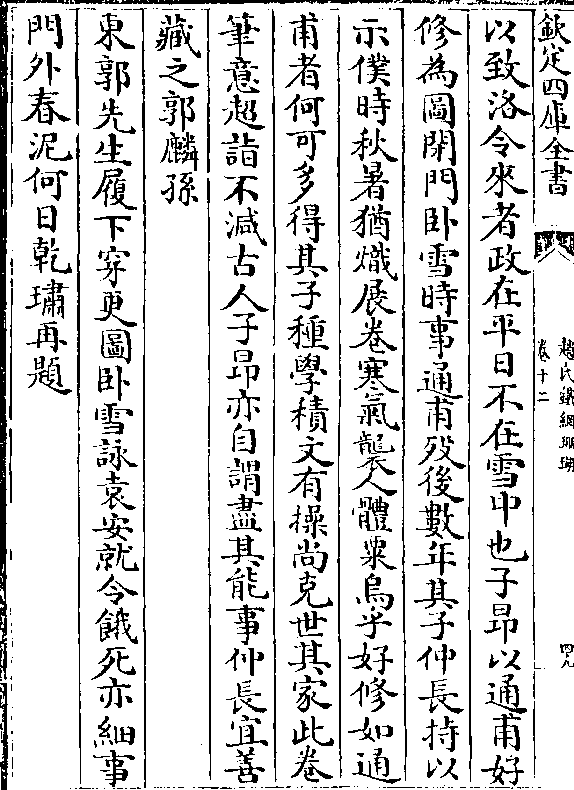 欽定四庫全書
趙氏鐵網珊瑚
卷十二
四九
以致洛令來者政在平日不在雪中也子昂以通甫好
修為圖閉門卧雪時事通甫殁後數年其子仲長持以
示僕時秋暑猶熾展卷寒氣襲人體粟烏乎好修如通
甫者何可多得其子種學積文有操尚克世其家此卷
筆意超詣不減古人子昂亦自謂盡其能事仲長宜善
藏之郭麟孫
東郭先生履下穿更圖卧雪詠袁安就令餓死亦細事
門外春泥何日乾璛再題